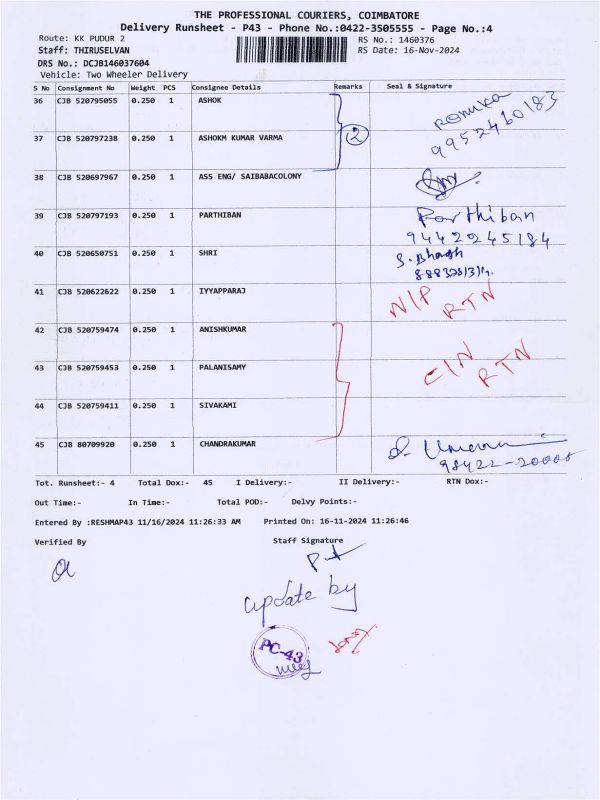 THE PROFESSIONAL COURIERS, COIMBATORE
Delivery Runsheet - P43 - Phone No.:0422-3505555 - Page No.:4
Route: KK PUDUR 2
RS No.: 1460376
Staff: THIRUSELVAN
RS Date: 16-Nov-2024
DRS No.: DCJB146037604
Vehicle: Two Wheeler Delivery
S No Consignment No Weight PCS Consignee Details Remarks Seal & Signature
36 CJB 520795055 0.250 1 ASHOK
Renuka
9952460183
37 CJB 520797238 0.250 1 ASHOKM KUMAR VARMA 2
38 CJB 520697967 0.250 1 ASS ENG/ SAIBABACOLONY
39 CJB 520797193 0.250 1 PARTHIBAN Parthiban
9442245184
40 CJB 520650751 0.250 1 SHRI
41 CJB 520622622 0.250 1 IYYAPPARAJ N/P RTN
42 CJB 520759474 0.250 1 ANISHKUMAR
43 CJB 520759453 0.250 1 PALANISAMY C/N RTN
44 CJB 520759411 0.250 1 SIVAKAMI
45 CJB 80709920 0.250 1 CHANDRAKUMAR
98422-20008
Tot. Runsheet:- 4 Total Dox:- 45 I Delivery:- II Delivery:- RTN Dox:-
Out Time:- In Time:- Total POD:- Delvy Points:-
Entered By :RESHMAP43 11/16/2024 11:26:33 AM Printed On: 16-11-2024 11:26:46
Verified By Staff Signature
update by
PC-43